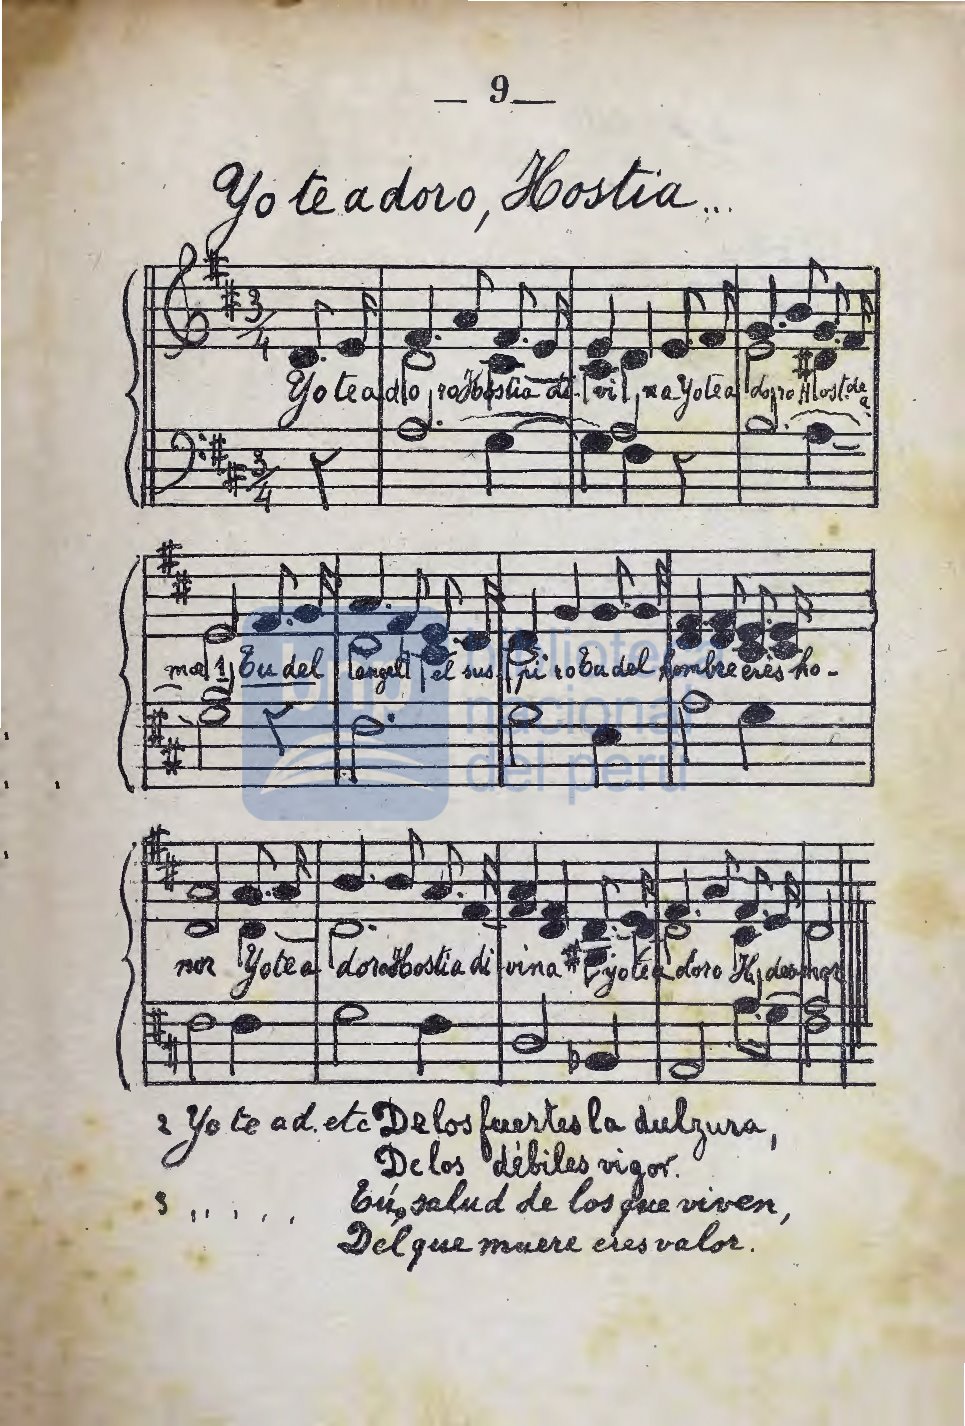 — 9 —
Yo te adoro, Hostia...
3/4
Yo te ado ro Hostia di vi na Yo te a doro Host. de a
3/4
mor 1 Tu del angel el sus pi ro Tu del hombre eres ho-
biblioteca
nacional
del perú
nor Yo te a doro Hostia di vina yo te a doro H. de amor
2 Yo te ad. etc De los fuertes la dulzura,
De los débiles vigor.
3 " " " " Tú, salud de los que viven,
Del que muere eres valor.